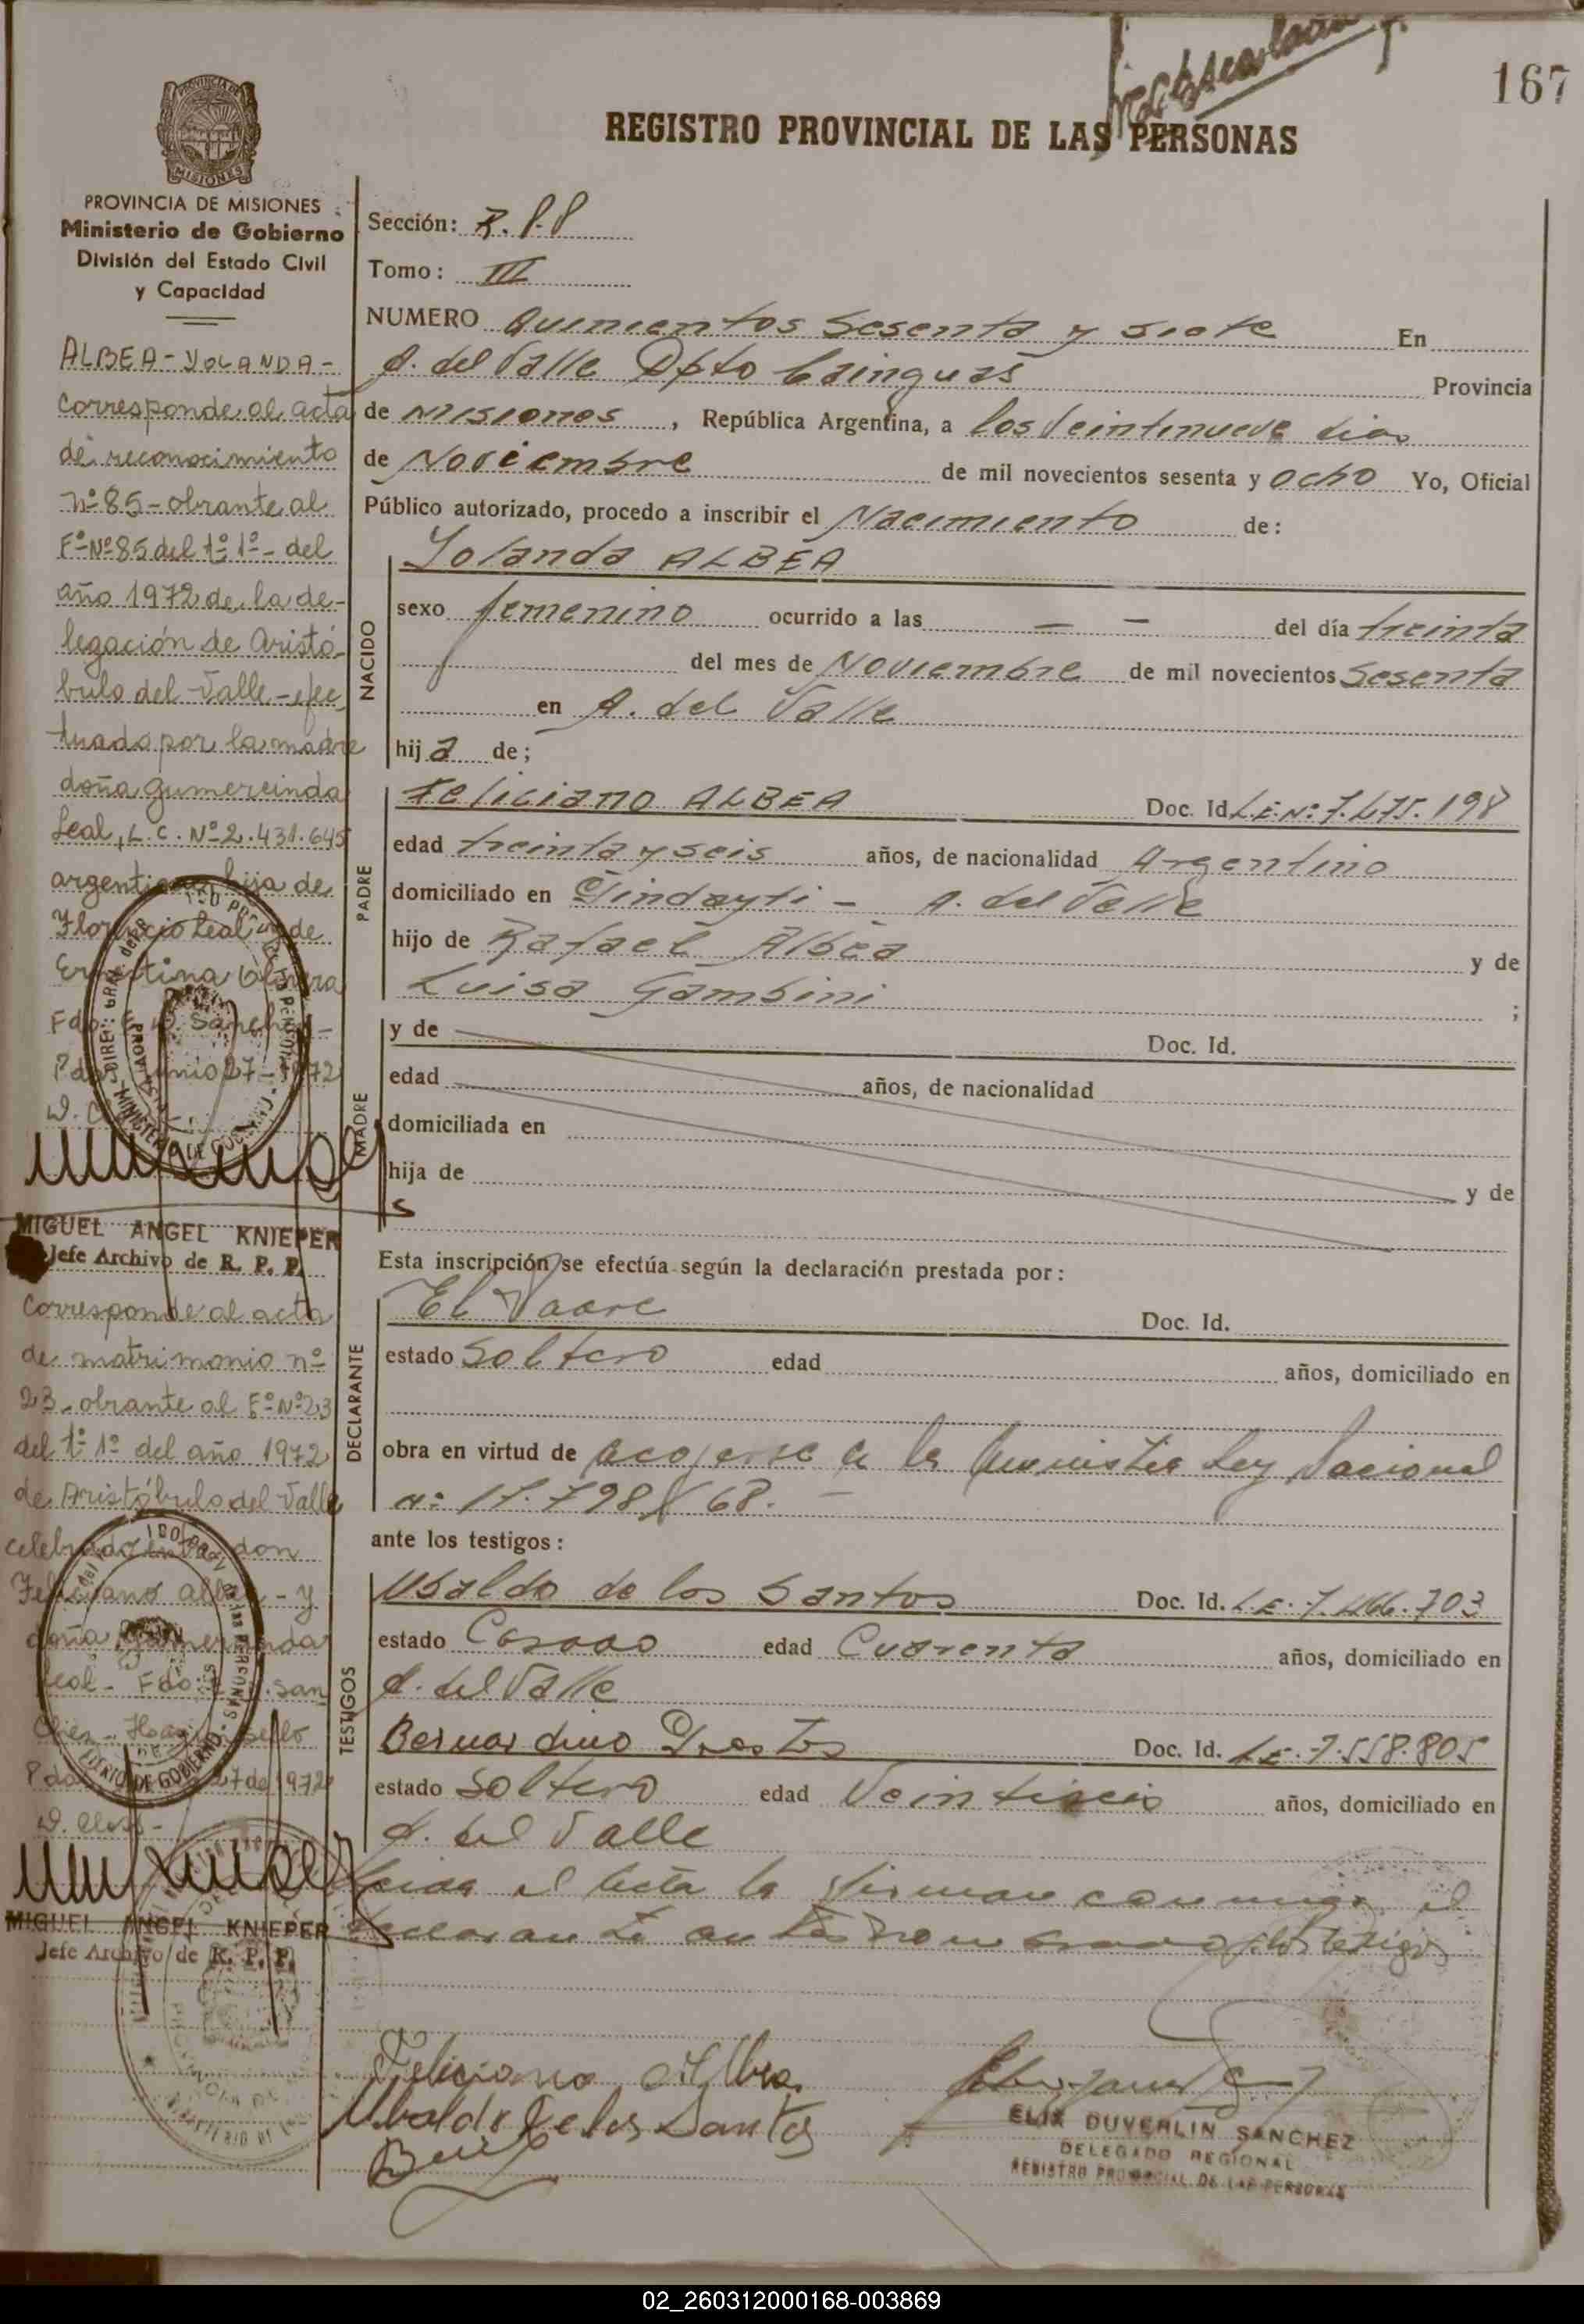 167
REGISTRO PROVINCIAL DE LAS PERSONAS
MISIONES
PROVINCIA DE MISIONES
Ministerio de Gobierno
División del Estado Civil
y Capacidad
ALBEA-YOLANDA-
Corresponde al acta
de reconocimiento
nº 85-obrante al
Fº Nº 85 del tº 1º- del
año 1972 de la de-
legación de Aristó-
bulo del Valle-efec
tuado por la madre
doña Gumercinda
Leal, L.C. Nº 2.431.645
argentina hija de
Leal y de
Fdo: Sanchez-
Pdas Junio 27-1972
MIGUEL ANGEL KNIEPER
Jefe Archivo de R. P. P.
Corresponde al acta
de matrimonio nº
23-obrante al Fº Nº 23
del tº 1º del año 1972
de Aristóbulo del Valle
celebrado entre don
Feliciano Albea - y
doña Gumercinda
Leal- Fdo: San
chez- sello
27 de 1972
MIGUEL ANGEL KNIEPER
Jefe Archivo de R. P. P.
Sección: R.P.P
Tomo: III
NUMERO Quinientos Sesenta y siete En
A. del Valle Dpto Cainguas Provincia
de Misiones, República Argentina, a los Veintinueve dias
de Noviembre de mil novecientos sesenta y ocho Yo, Oficial
Público autorizado, procedo a inscribir el Nacimiento de:
NACIDO
Yolanda ALBEA
sexo femenino ocurrido a las - - del día treinta
del mes de Noviembre de mil novecientos Sesenta
en A. del Valle
hija de;
PADRE
Feliciano ALBEA Doc. Id. L.E. Nº 7.475.198
edad treinta y seis años, de nacionalidad Argentino
domiciliado en - A. del Valle
hijo de Rafael Albea y de
Luisa Gambini ;
MADRE
y de Doc. Id.
edad años, de nacionalidad
domiciliada en
hija de y de
Esta inscripción se efectúa según la declaración prestada por:
DECLARANTE
El Padre Doc. Id.
estado Soltero edad años, domiciliado en
obra en virtud de acogerse a la Amnistia Ley Nacional
nº 17.798/68.-
ante los testigos:
TESTIGOS
Ubaldo de los Santos Doc. Id. L.E. 7.466.703
estado Casado edad Cuarenta años, domiciliado en
A. del Valle
Bernardino Doc. Id. L.E. 7.558.805
estado Soltero edad Veintiseis años, domiciliado en
A. del Valle
Leida el Acta la firman conmigo el
declarante antes nombrado y los testigos
Feliciano Albea
Ubaldo de los Santos
ELIX DUVERLIN SANCHEZ
DELEGADO REGIONAL
REGISTRO PROVINCIAL DE LAS PERSONAS
02_260312000168-003869